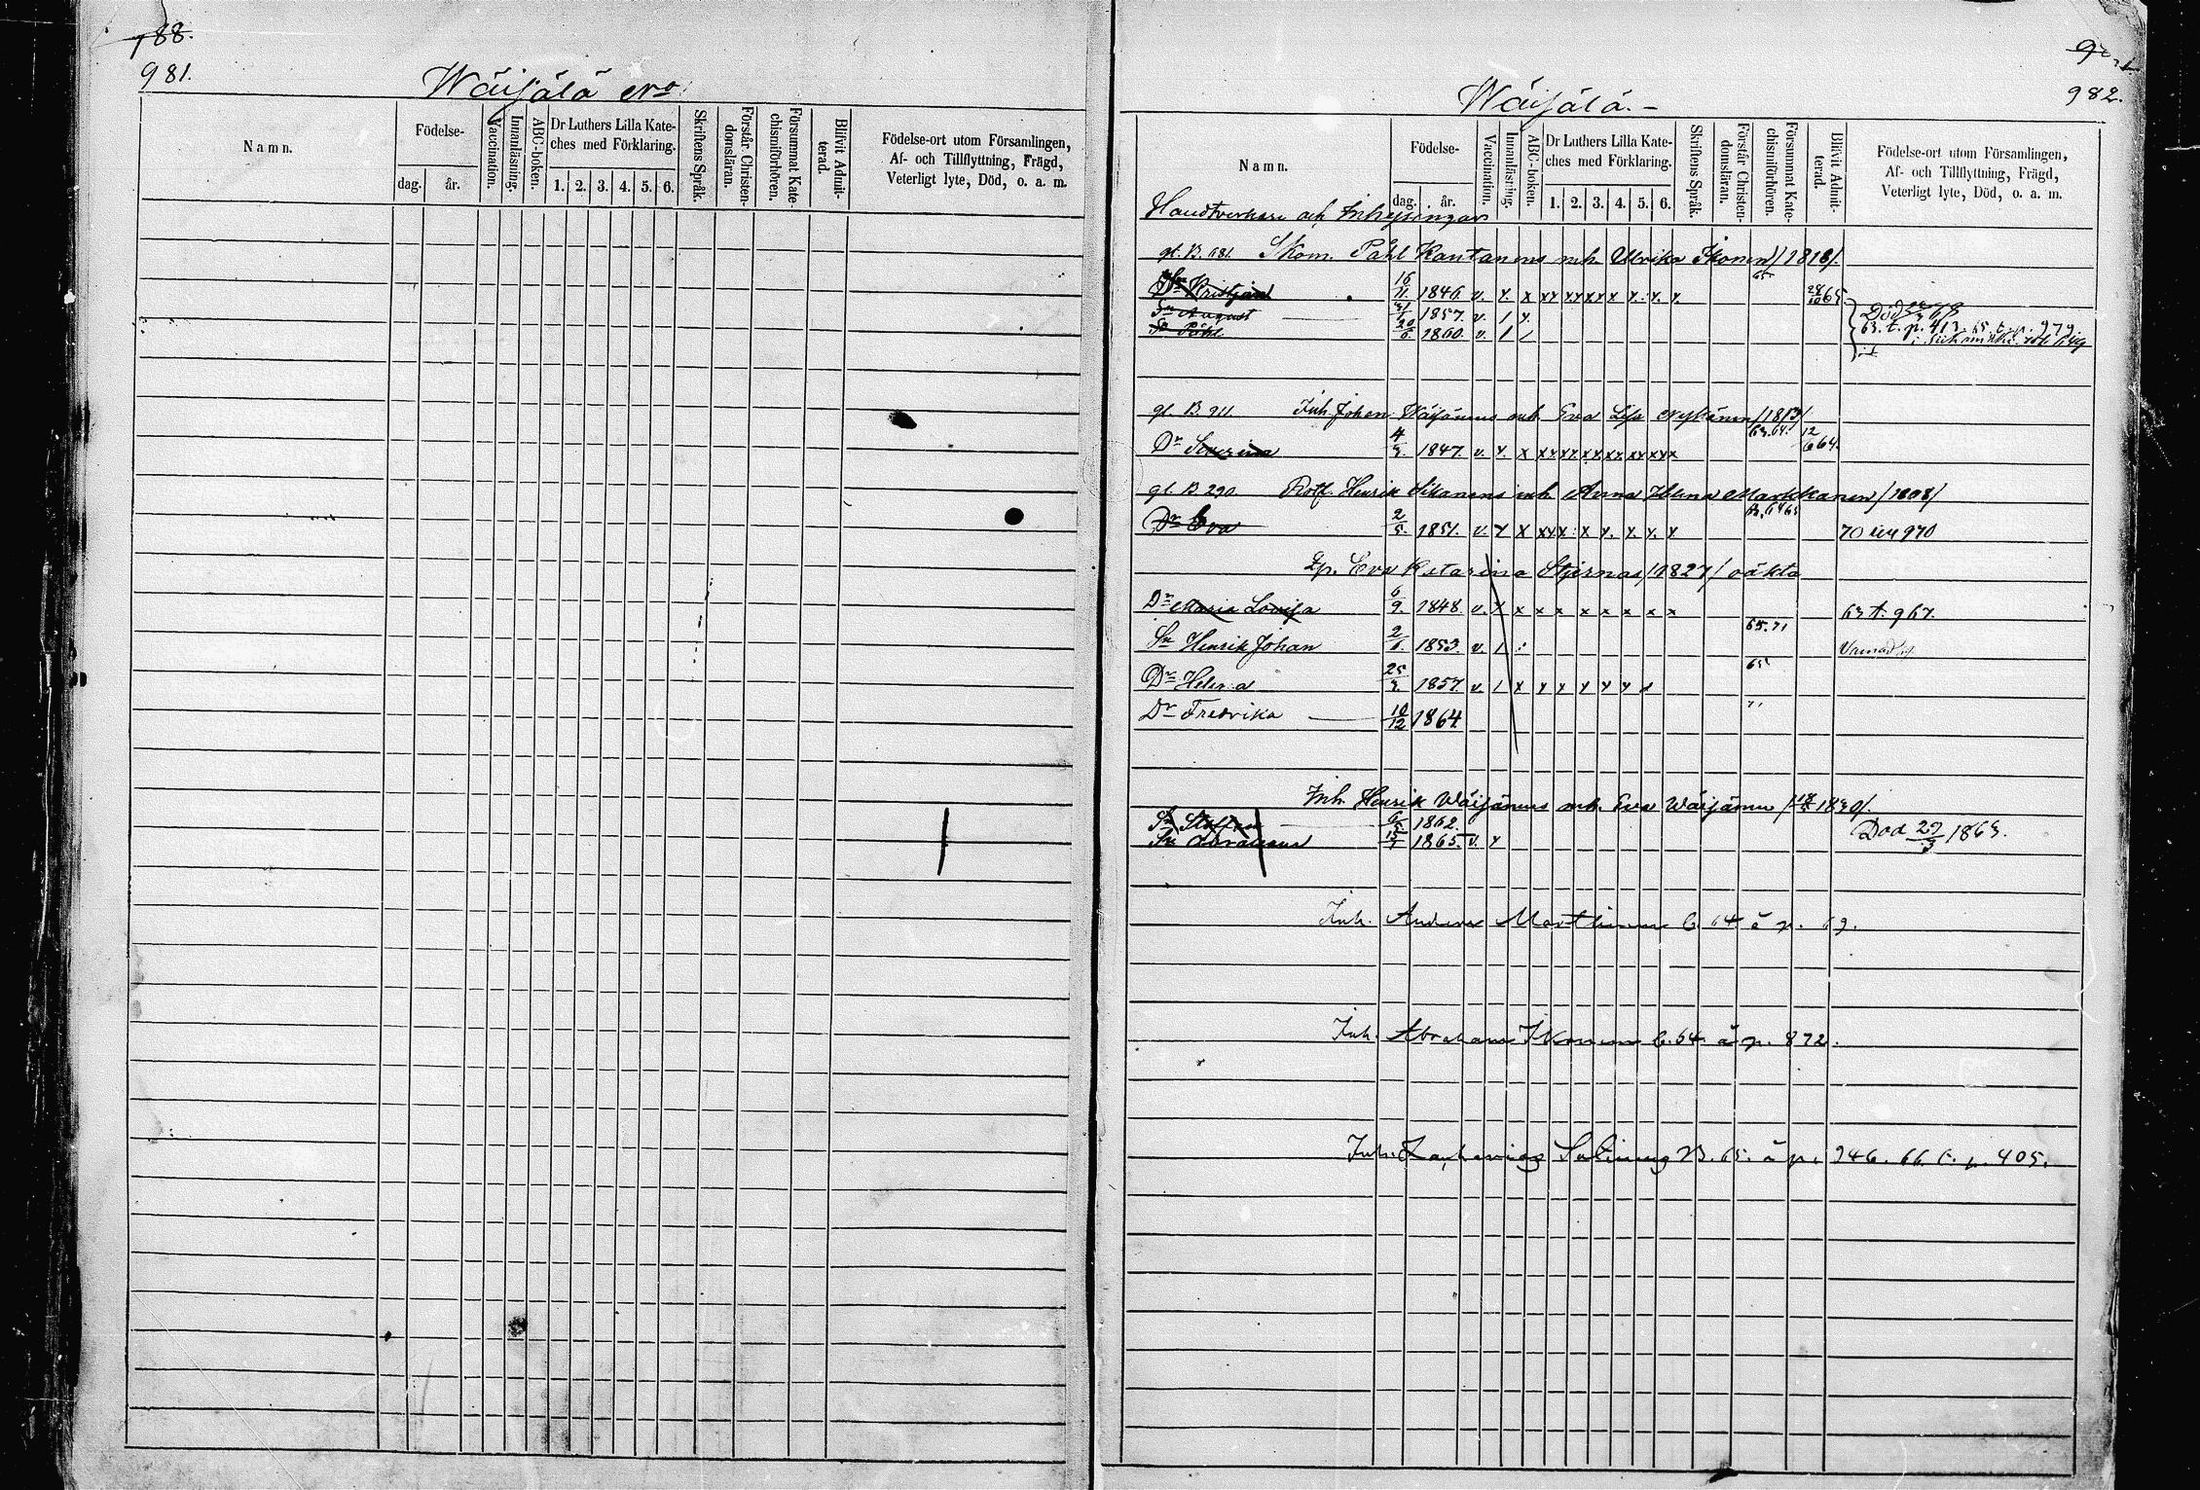 188.
981.
Wäijälä No
Namn.
Födelse-
dag.
år.
Vaccination.
Innanläsning.
ABC-boken.
Dr Luthers Lilla Kate-
ches med Förklaring.
1. 2. 3. 4. 5. 6.
Skriftens Språk.
Förstår Christen-
domsläran.
Försummat Kate-
chismiförhören.
Blifvit Admit-
terad.
Födelse-ort utom Församlingen,
Af- och Tillflyttning, Frägd,
Veterligt lyte, Död, o. a. m.
982.
Wäijälä.
Namn.
Födelse-
dag. år.
Vaccination.
Innanläsning.
ABC-boken.
Dr Luthers Lilla Kate-
ches med Förklaring.
1. 2. 3. 4. 5. 6.
Skriftens Språk.
Förstår Christen-
domsläran.
Försummat Kate-
chismiförhören.
Blifvit Admit-
terad.
Födelse-ort utom Församlingen,
Af- och Tillflyttning, Frägd,
Veterligt lyte, Död, o. a. m.
Handtverkare och Inhysingar
gl. B. 681. Skom. Påhl Kantanens mh Ulrika Ikonen /1818/.
65
Kristian 16/11 1846 v. x x xx xx xx x x. x. x 65
Sn August 1857. v. 1 x.
Sn Påhl 20/6. 1860. v. 1 /
63. t. p. 413. 65. t. p. 979.
gl. B. 911. Inh. Johan Wäijänens mh Eva Lisa Nykänen /1813/
63. 64. 12/6 64.
Dr 4/3. 1847. v. x. x xx xx xx xx xx xxx
gl. B 290. Rotf. Henrik mh Anna Helena Markkanen /1808/
Dr Eva 2/5. 1851. v. x x xxx x x. x. x. x 70 970
Qp. Eva Katarina Stjernas /1827/ oäkta
Dr Maria Lovisa 6/9. 1848 v. x x x x x x x x 63 t. 967.
65. 71
Sn Henrik Johan 2/6. 1853. v. 1
65
Dr Helena 25/3. 1857. v. 1 x x x x x x
Dr Fredrika 10/12 1864
Inh. Henrik Wäijänens mh. Eva Wäijänen 1830/.
Sn Staffan 1862. Död 29/3 1863.
Sn Abraham 1865. v. x
Inh. Anders Marttinen 64 å p. 69.
Inh. Abraham Ikonen 64. å p. 872.
Inh. Zacharias B. 65. å p. 246. 66. t. p. 405.